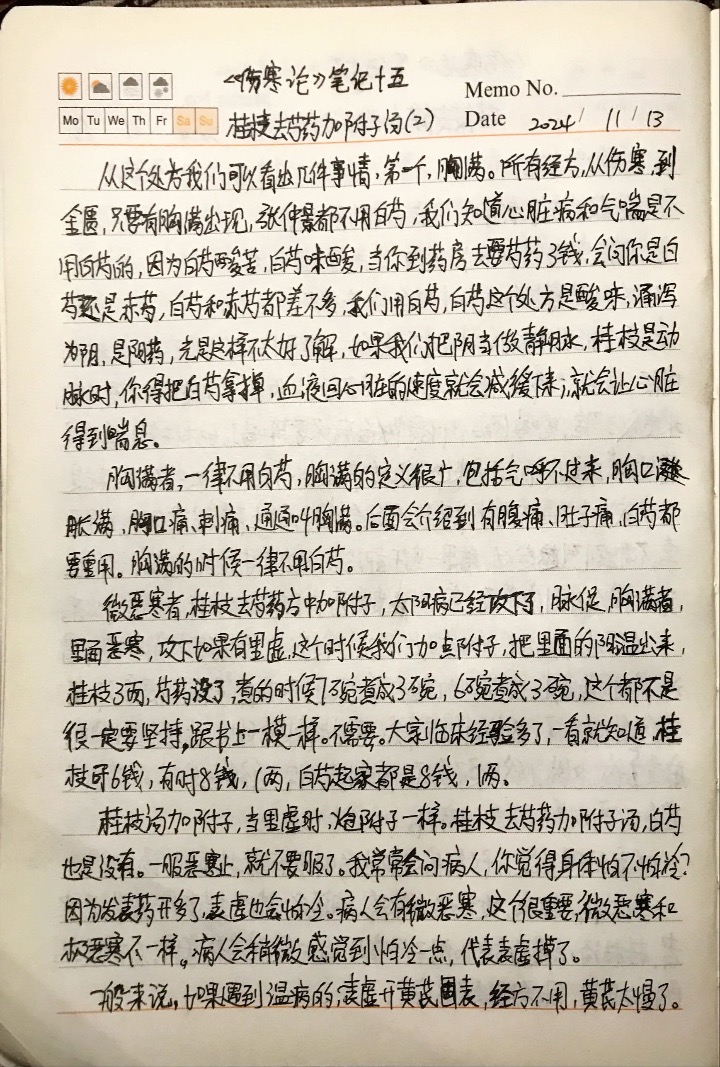 《伤寒论》笔记十五
Memo No.
Mo Tu We Th Fr Sa Su
桂枝去芍药加附子汤(2)
Date 2024/ 11/ 13
从这个处方我们可以看出几件事情,第一个,胸满。所有经方,从伤寒到
金匮,只要有胸满出现,张仲景都不用白芍,我们知道心脏病和气喘是不
用白芍的,因为白芍酸苦,白芍味酸,当你到药房去要芍药3钱,会问你是白
芍还是赤芍,白芍和赤芍都差不多,我们用白芍,白芍这个处方是酸味,涌泻
为阴,是阴药,光是这样不太好了解,如果我们把阴当做静脉,桂枝是动
脉时,你得把白芍拿掉,血液回心脏的速度就会减缓下来,就会让心脏
得到喘息。
胸满者,一律不用白芍,胸满的定义很广,包括气呼不过来,胸口
胀满、胸口痛、刺痛、通通叫胸满。后面会介绍到有腹痛、肚子痛,白芍都
要重用。胸满的时候一律不用白芍。
微恶寒者,桂枝去芍药方中加附子,太阳病已经攻下了,脉促,胸满者,
里面恶寒,攻下如果有里虚,这个时候我们加点附子,把里面的阴温出来,
桂枝3两,芍药没了,煮的时候7碗煮成3碗,6碗煮成3碗,这个都不是
很一定要坚持,跟书上一模一样。不需要。大家临床经验多了,一看就知道,桂
枝开6钱,有时8钱,1两,白芍起家都是8钱,1两。
桂枝汤加附子,当里虚时,炮附子一样。桂枝去芍药加附子汤,白芍
也是没有。一服恶寒止,就不要服了。我常常会问病人,你觉得身体怕不怕冷?
因为发表药开多了,表虚也会怕冷。病人会有微恶寒,这个很重要,微恶寒和
极恶寒不一样。病人会稍微感觉到怕冷一点,代表表虚掉了。
一般来说,如果遇到温病的,表虚开黄芪固表,经方不用,黄芪太慢了。